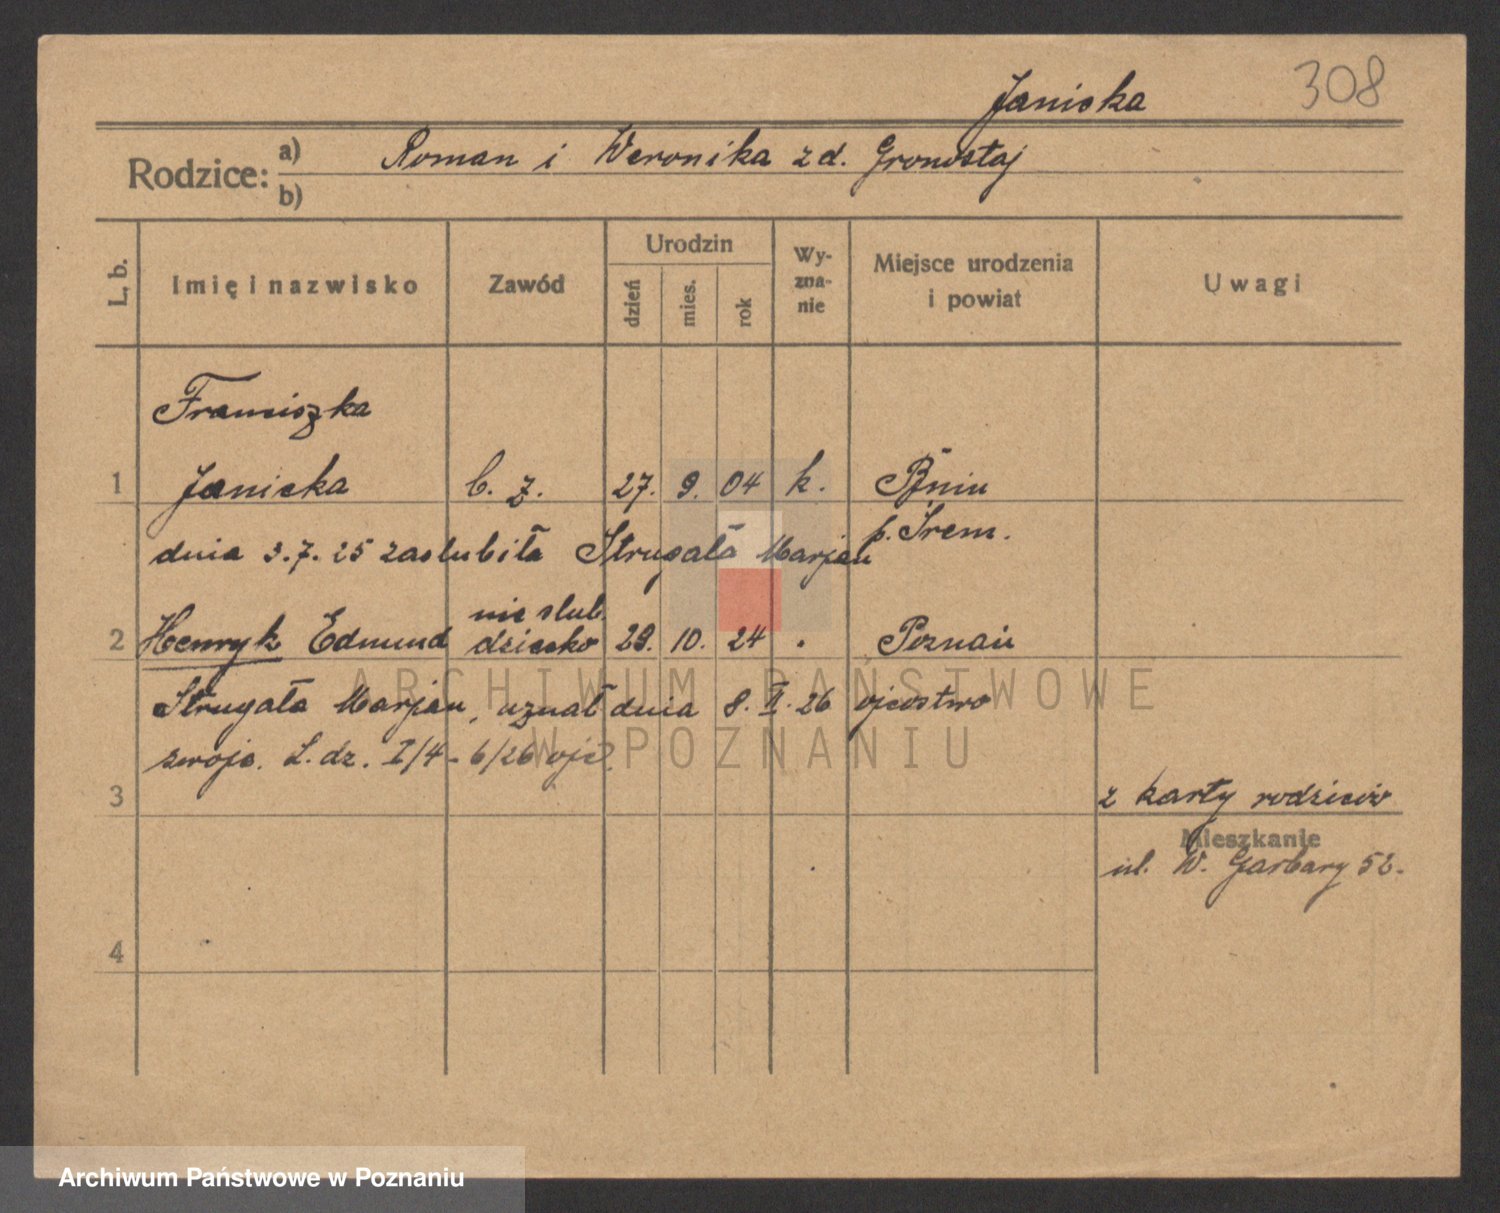 Janicka 308
Rodzice: a) Roman i Weronika zd. Gronostaj
b)
L. b. Imię i nazwisko Zawód Urodzin dzień mies. rok Wy-zna-nie Miejsce urodzenia i powiat Uwagi
Franciszka
1 Janicka b. z. 27. 9. 04 k. Bnin
p. Śrem.
dnia 3.7.25 zaślubiła Strugała Marjan
nie ślub.
2 Henryk Edmund dziecko 29. 10. 24 . Poznań
Strugała Marjan, uznał dnia 8. II. 26 ojcostwo
swoje. L. dz. I/4 - 6/26 ojc.
3 z karty rodziców
Mieszkanie
ul. W. Garbary 52.
4
ARCHIWUM PAŃSTWOWE
W POZNANIU
Archiwum Państwowe w Poznaniu